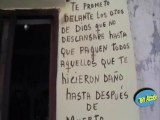 TE PROMETO
DELANTE LOS OJOS
DE DIOS QUE NO
DESCANSARE HASTA
QUE PAGUEN TODOS
AQUELLOS QUE TE
HICIERON DAÑO
HASTA DESPUÉS
DE
MUERTO